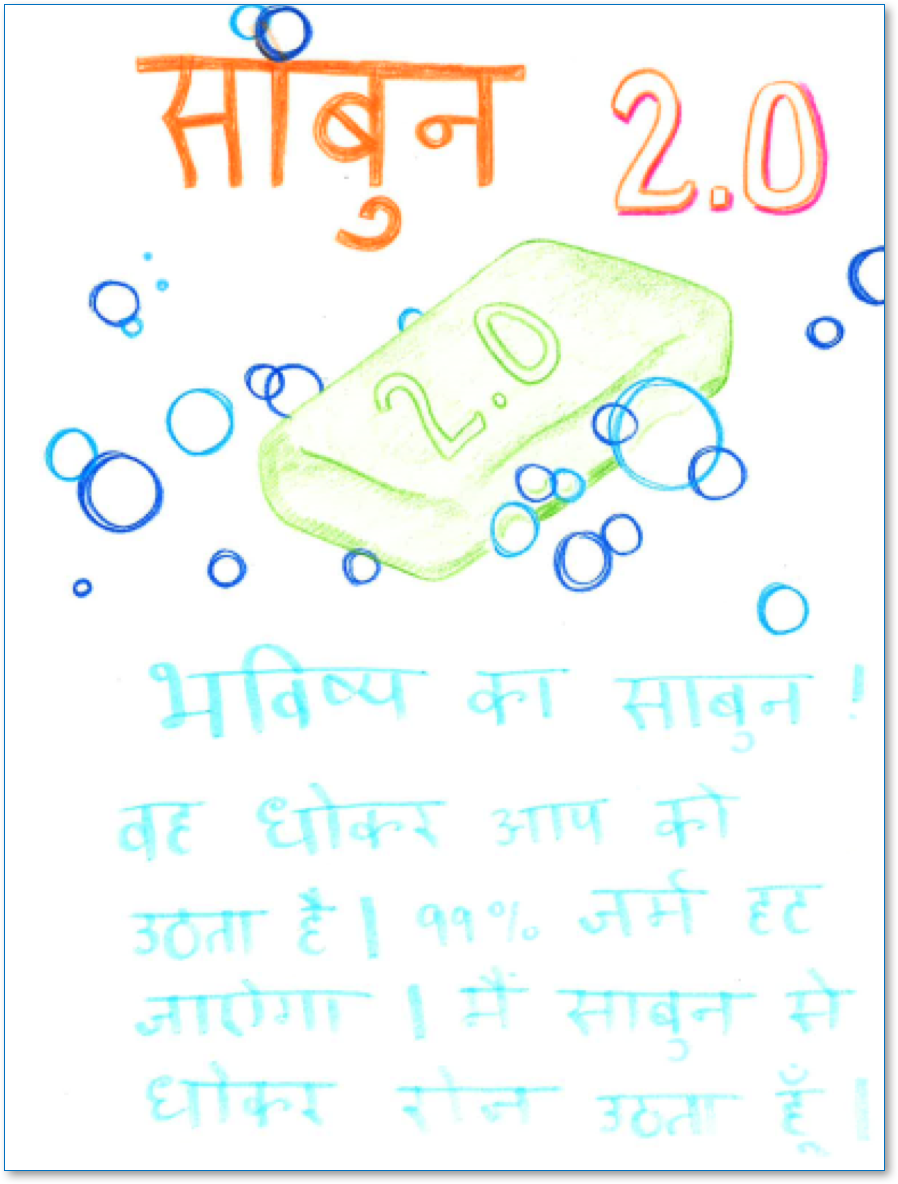 साबुन 2.0
2.0
भविष्य का साबुन !
वह धोकर आप को
उठता है | 99% जर्म हट
जाऐगा | मैं साबुन से
धोकर रोज उठता हूँ |